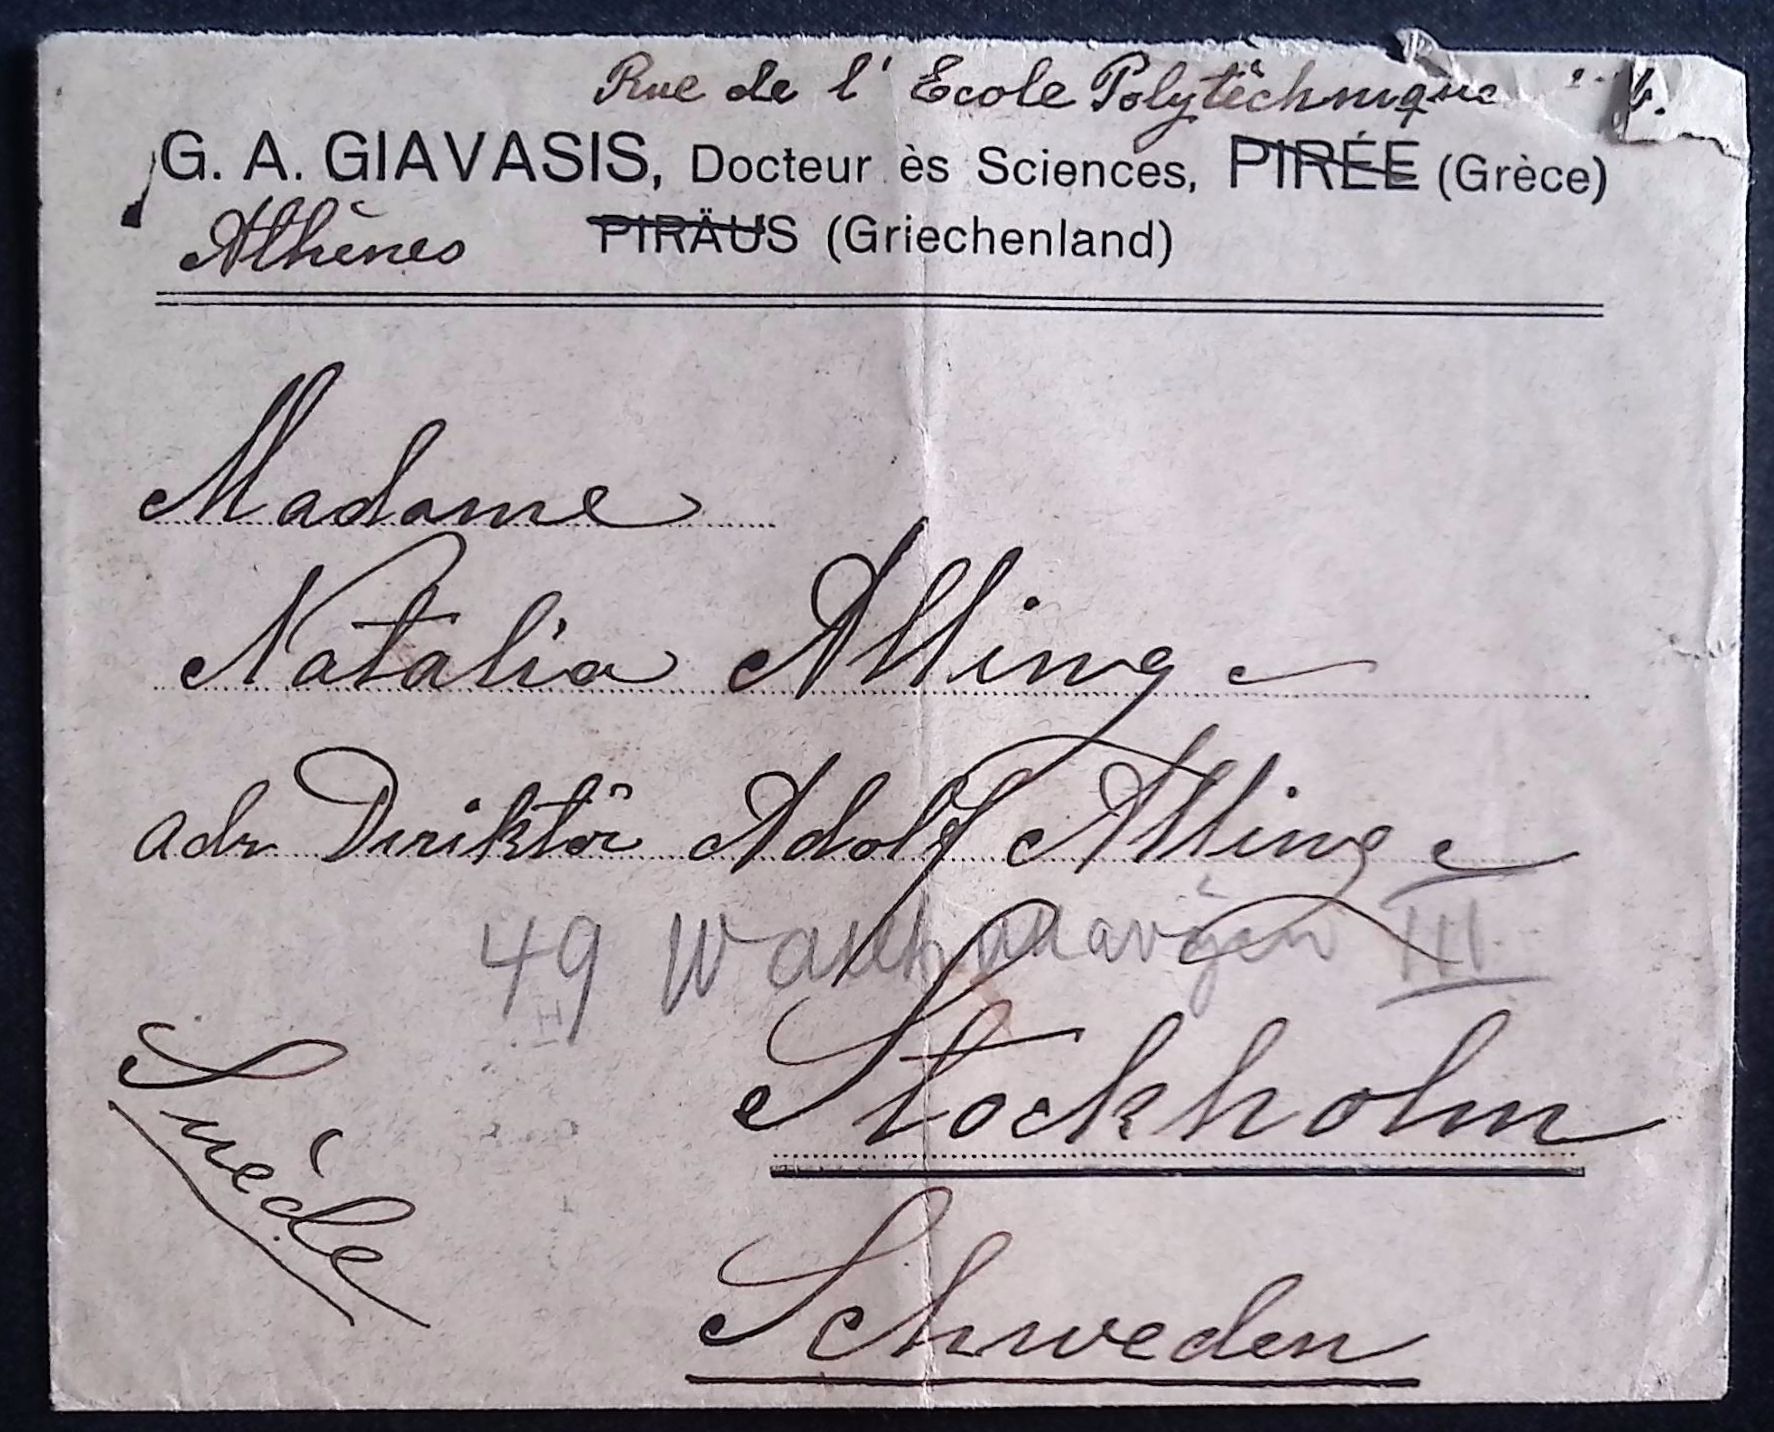 Rue de l' Ecole Polytéchnique
G. A. GIAVASIS, Docteur ès Sciences, PIRÉE (Grèce)
Athènes PIRÄUS (Griechenland)
Madame
Natalia Alling
adr Diriktör Adolf Alling
49 III
Stockholm
Suède
Schweden